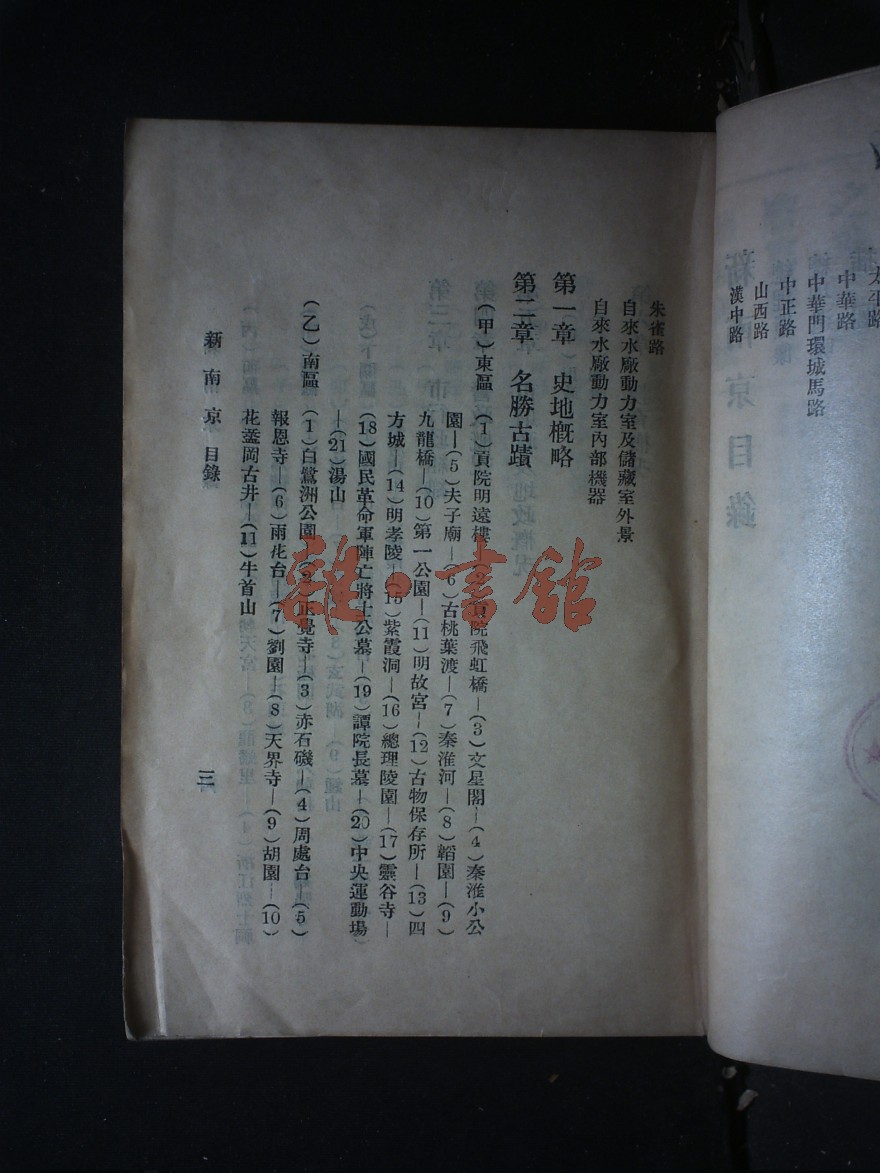 中華路
中華門環城馬路
中正路
山西路
漢中路
朱雀路
自來水廠動力室及儲藏室外景
自來水廠動力室內部機器
第一章 史地概略
第二章 名勝古蹟
(甲)東區 (1)貢院明遠樓—(2)貢院飛虹橋—(3)文星閣—(4)秦淮小公
園—(5)夫子廟—(6)古桃葉渡—(7)秦淮河—(8)韜園—(9)
九龍橋—(10)第一公園—(11)明故宮—(12)古物保存所—(13)四
方城—(14)明孝陵—(15)紫霞洞—(16)總理陵園—(17)靈谷寺—
(18)國民革命軍陣亡將士公墓—(19)譚院長墓—(20)中央運動場
—(21)湯山
(乙)南區 (1)白鷺洲公園—(2)正覺寺—(3)赤石磯—(4)周處台—(5)
報恩寺—(6)雨花台—(7)劉園—(8)天界寺—(9)胡園—(10)
花盝岡古井—(11)牛首山
新南京 目錄
三
雜·書館